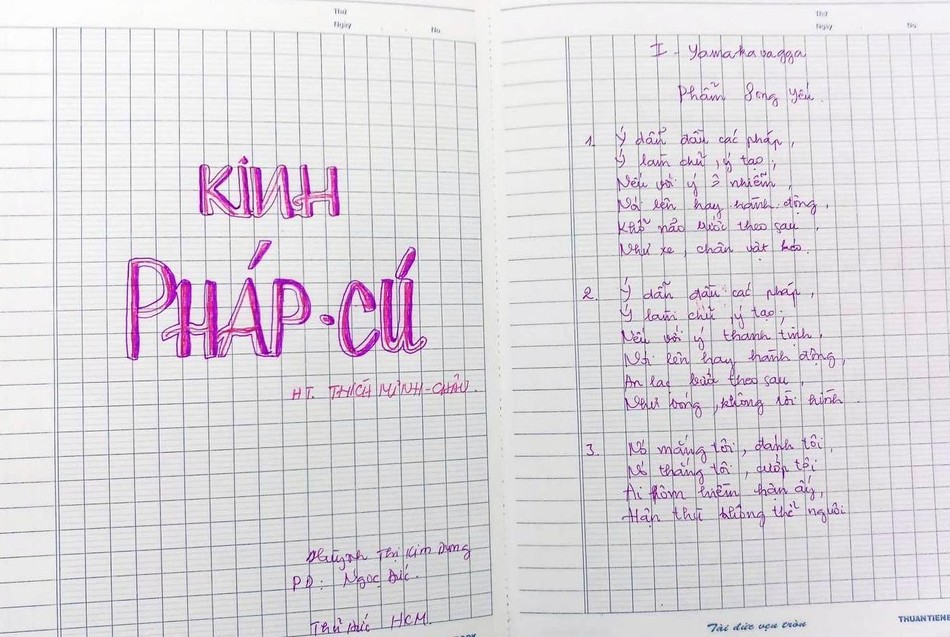 Thứ
Ngày
No
KINH
PHÁP-CÚ
HT. THÍCH MINH-CHÂU.
Huỳnh Thị Kim Dung
PD: Ngọc Đức.
Thủ Đức HCM.
Thứ
Ngày
No
I - Yamakavagga
Phẩm Song Yếu.
1. Ý dẫn đầu các pháp,
Ý làm chủ, ý tạo;
Nếu với ý ô nhiễm,
Nói lên hay hành động,
Khổ não bước theo sau,
Như xe, chân vật kéo.
2. Ý dẫn đầu các pháp,
Ý làm chủ, ý tạo;
Nếu với ý thanh tịnh
Nói lên hay hành động,
An lạc bước theo sau,
Như bóng, không rời hình.
3. Nó mắng tôi, đánh tôi,
Nó thắng tôi, cướp tôi
Ai ôm hiềm hận ấy,
Hận thù không thể nguôi
Tài đức vẹn tròn
THUANTIEN